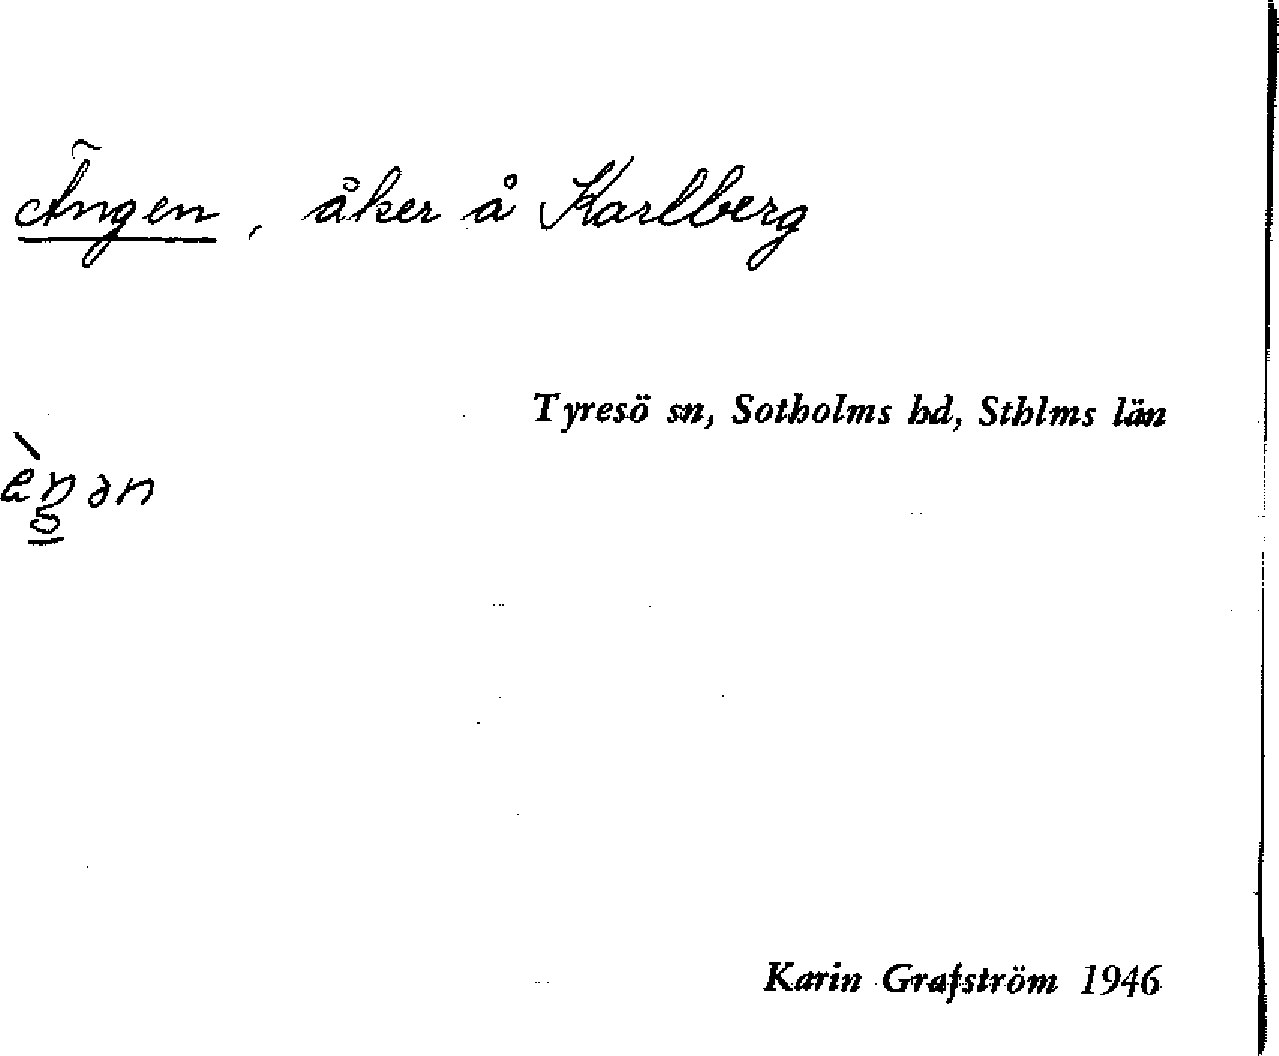 Ängen, åker å Karlberg
Tyresö sn, Sotholms hd, Sthlms län
Karin Grafström 1946